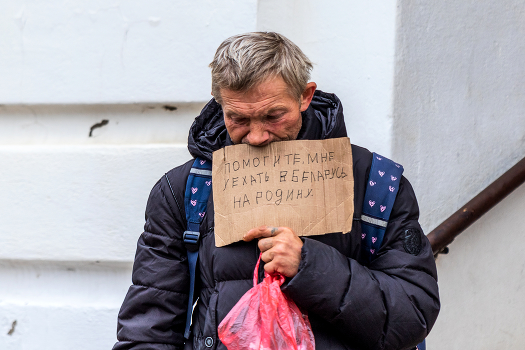 ПОМОГИТЕ, МНЕ
УЕХАТЬ В БЕЛАРУСЬ
НА РОДИНУ.